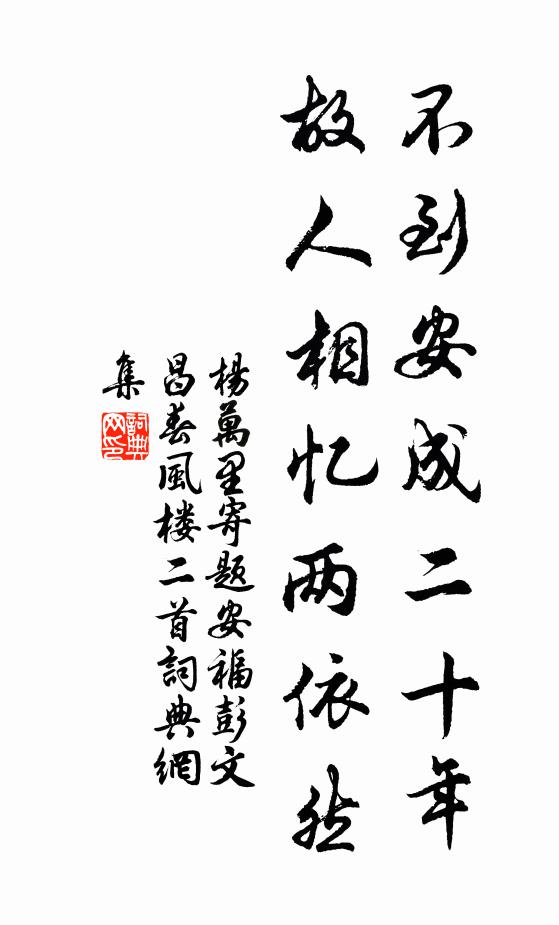 不到安成二十年
故人相忆两依然
楊萬里寄题安福彭文
昌春風楼二首詞典網
集
詞典
网印